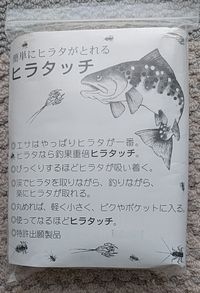 簡単にヒラタがとれる
ヒラタッチ
◎エサはやっぱりヒラタが一番。
◎ヒラタなら釣果重倍ヒラタッチ。
◎びっくりするほどヒラタが吸い着く。
◎沢でヒラタを取りながら、釣りながら、
楽にヒラタが取れる。
◎丸めれば、軽く小さく、ビクやポケットに入る。
◎使ってなるほどヒラタッチ。
◎特許出願製品